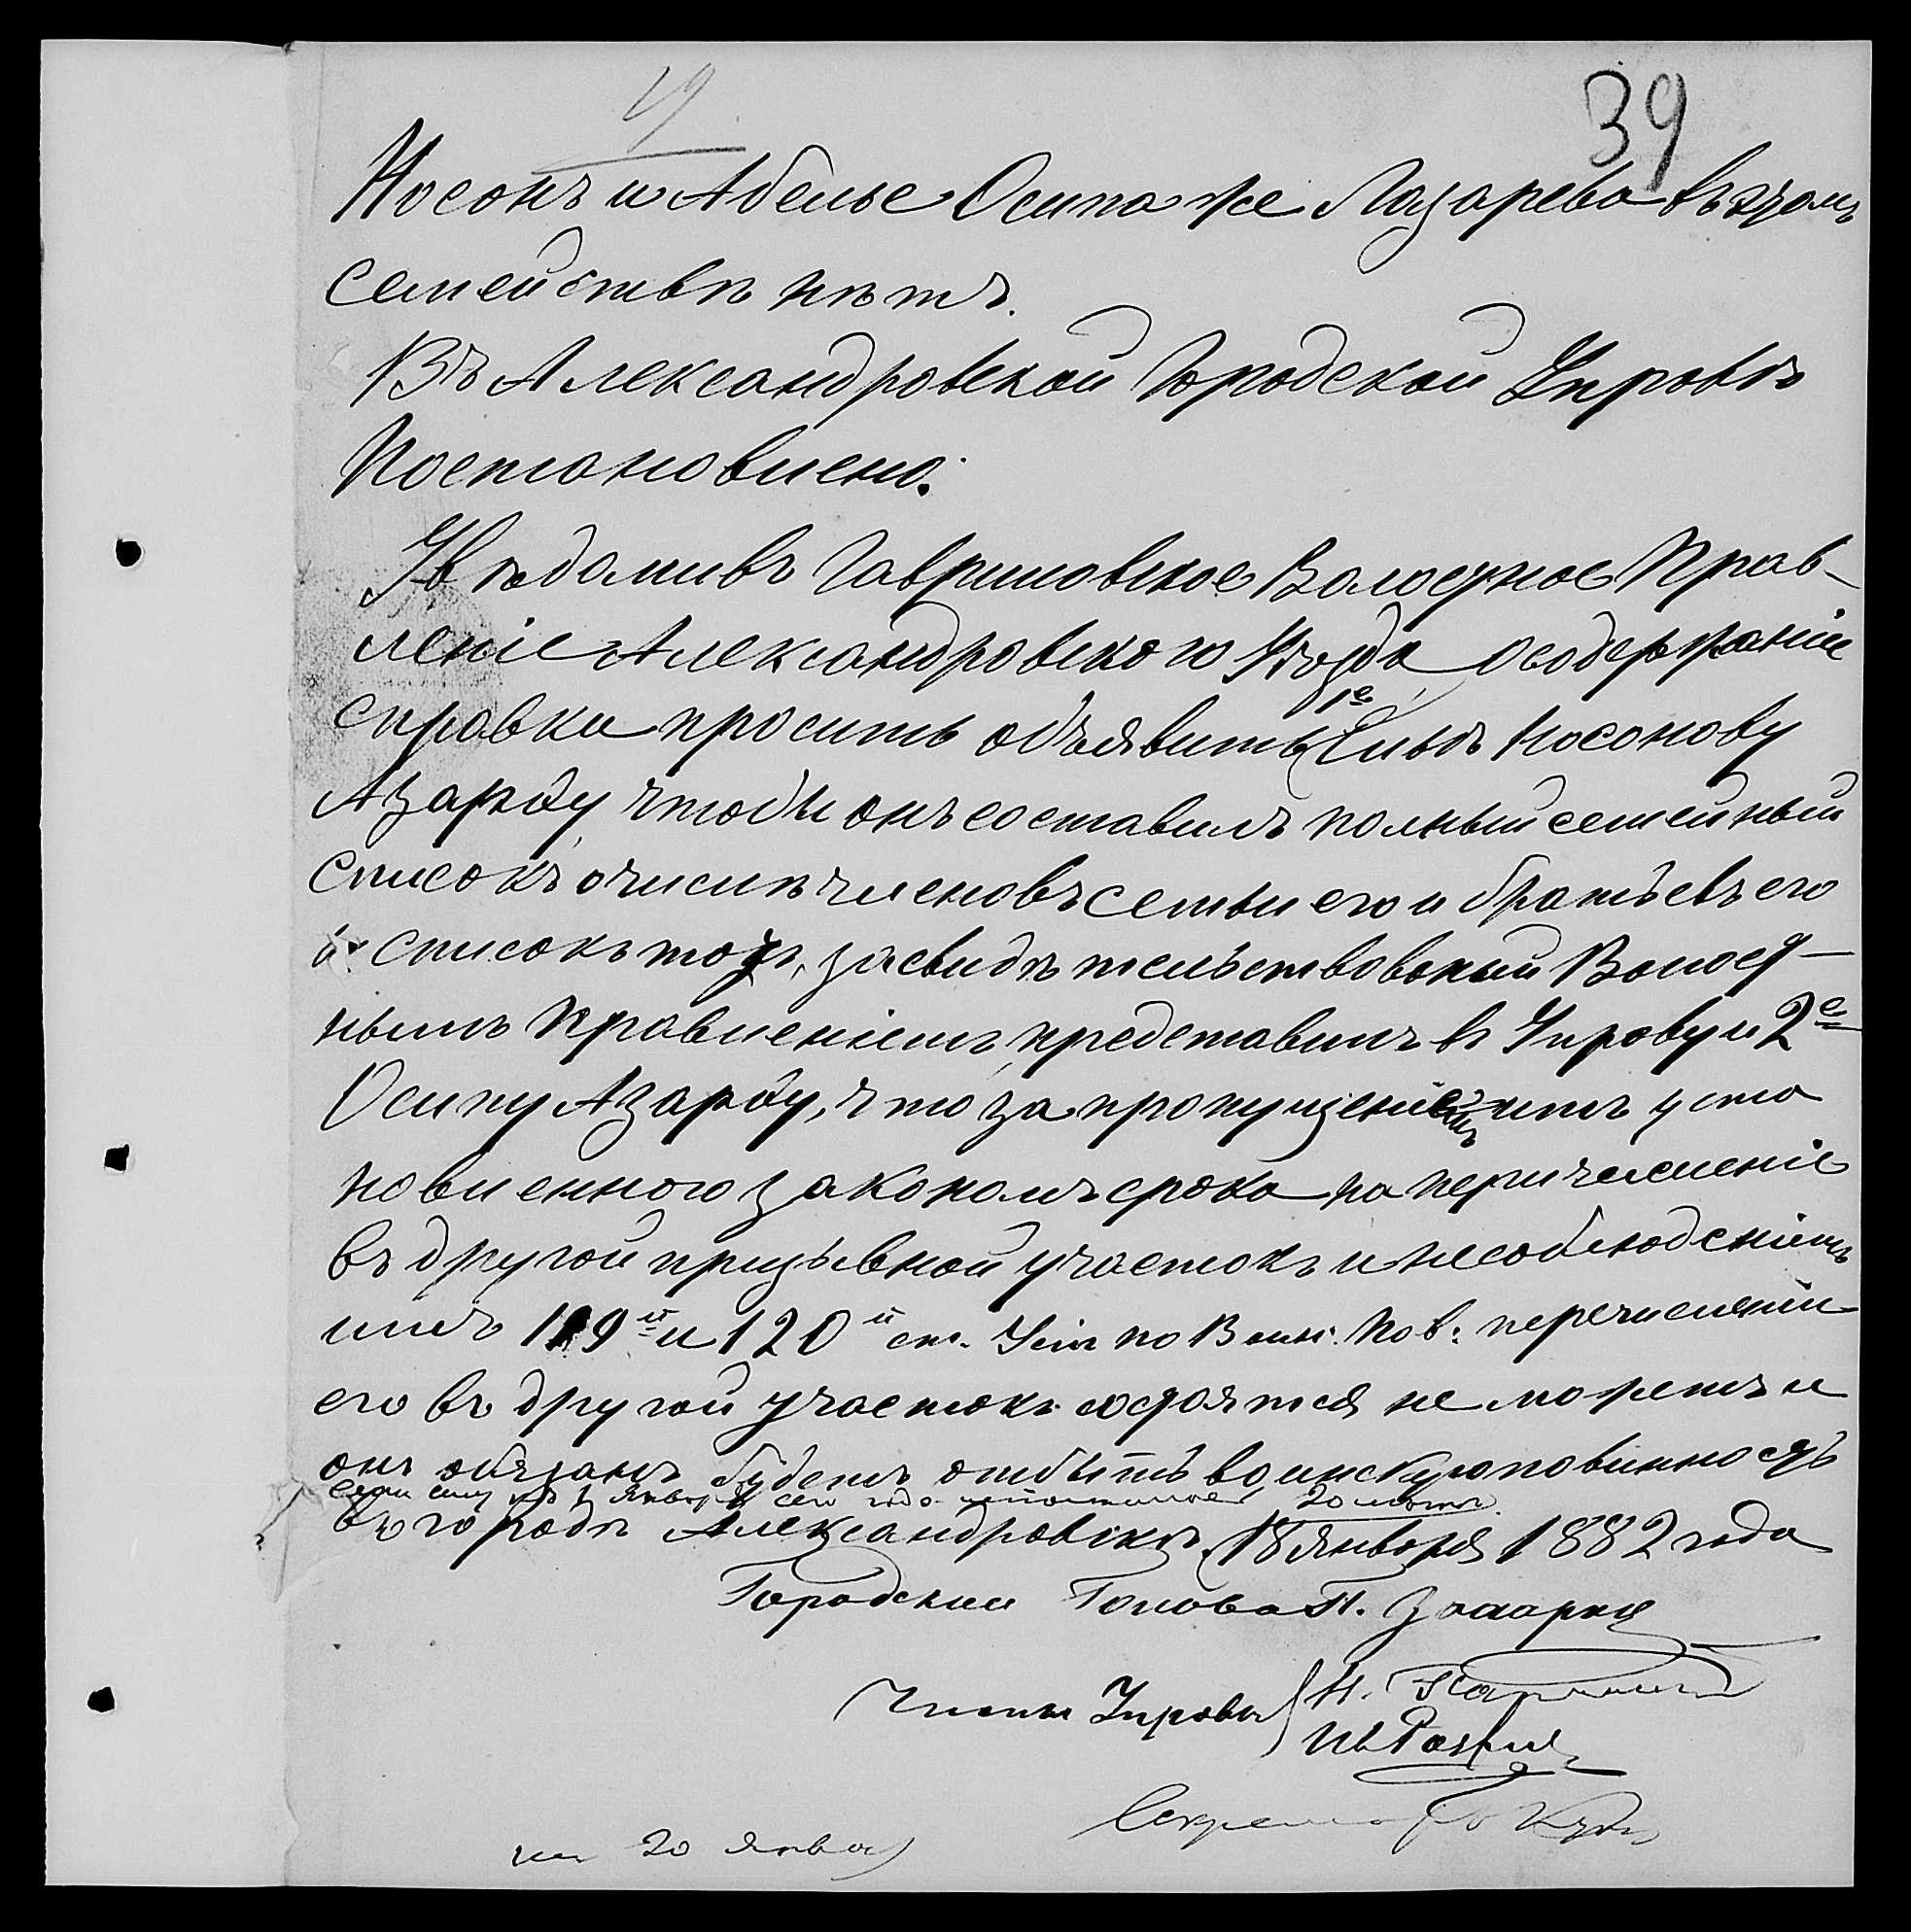 39
Носонъ и Абелье Осипа же Лазарева въ этомъ
семействѣ нѣтъ.
Въ Александровской Городской Управѣ
Постановлено:
Увѣдомивъ Гавриловское Волостное Прав-
леніе Александровского Уѣзда о содержаніи
справки просить объявить 1е Носонову
Азарху чтобы онъ составилъ полный семейный
списокъ о числѣ членовъ семьи его и братьевъ его
и списокъ тотъ, засвидѣтельствованый Волост-
нымъ Правленіемъ, представилъ въ Управу и 2е
Осипу Азарху, что за пропущеніемъ имъ уста
новленного закономъ срока на перечисленіе
въ другой призывной участокъ и несоблюденіемъ
имъ 119й и 120й ст. Уст по Воин. Пов: перечисленіе
его въ другой участокъ состоятся не можетъ и
онъ обязанъ будетъ отбыть воинскую повинность
если ему къ 1 Января сего года исполнилось 20 лѣтъ
въ городѣ Александровскѣ, 18 января 1882 года
Городский Голова П. Захарки
Члены Управы Н.
Ив
Секретарь
20 Января